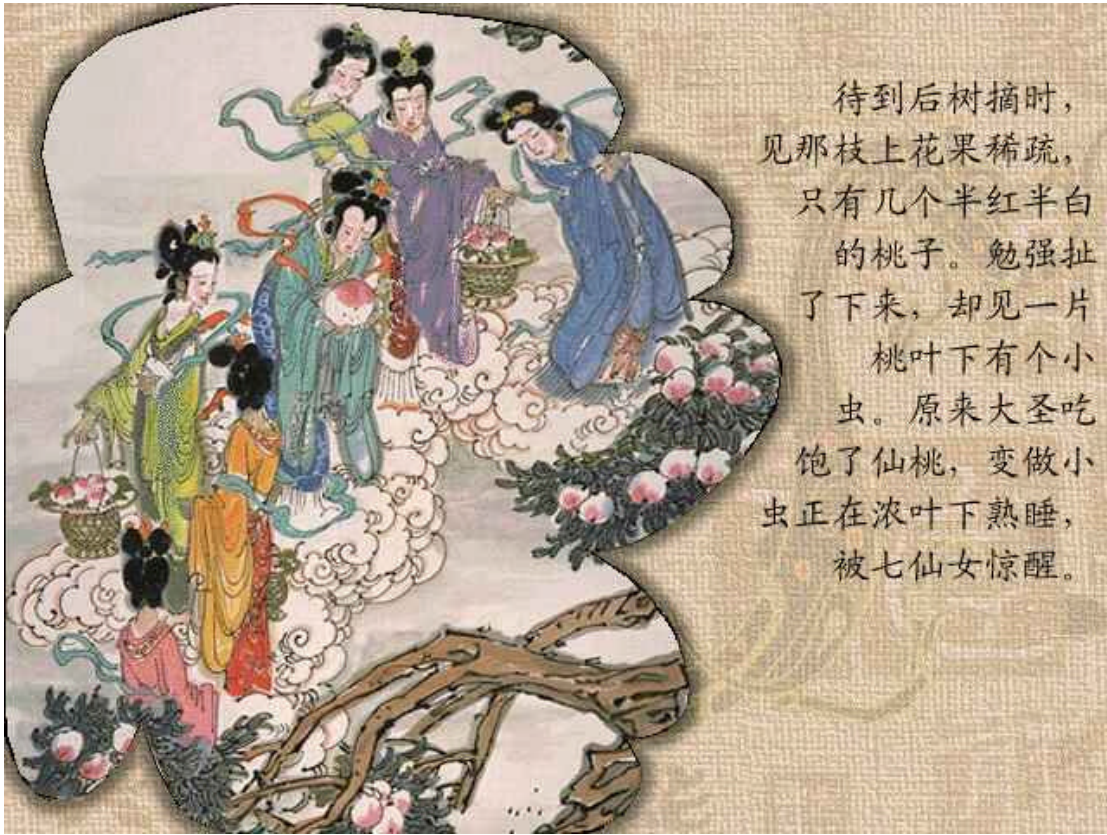 待到后树摘时，
见那枝上花果稀疏，
只有几个半红半白
的桃子。勉强扯
了下来，却见一片
桃叶下有个小
虫。原来大圣吃
饱了仙桃，变做小
虫正在浓叶下熟睡，
被七仙女惊醒。